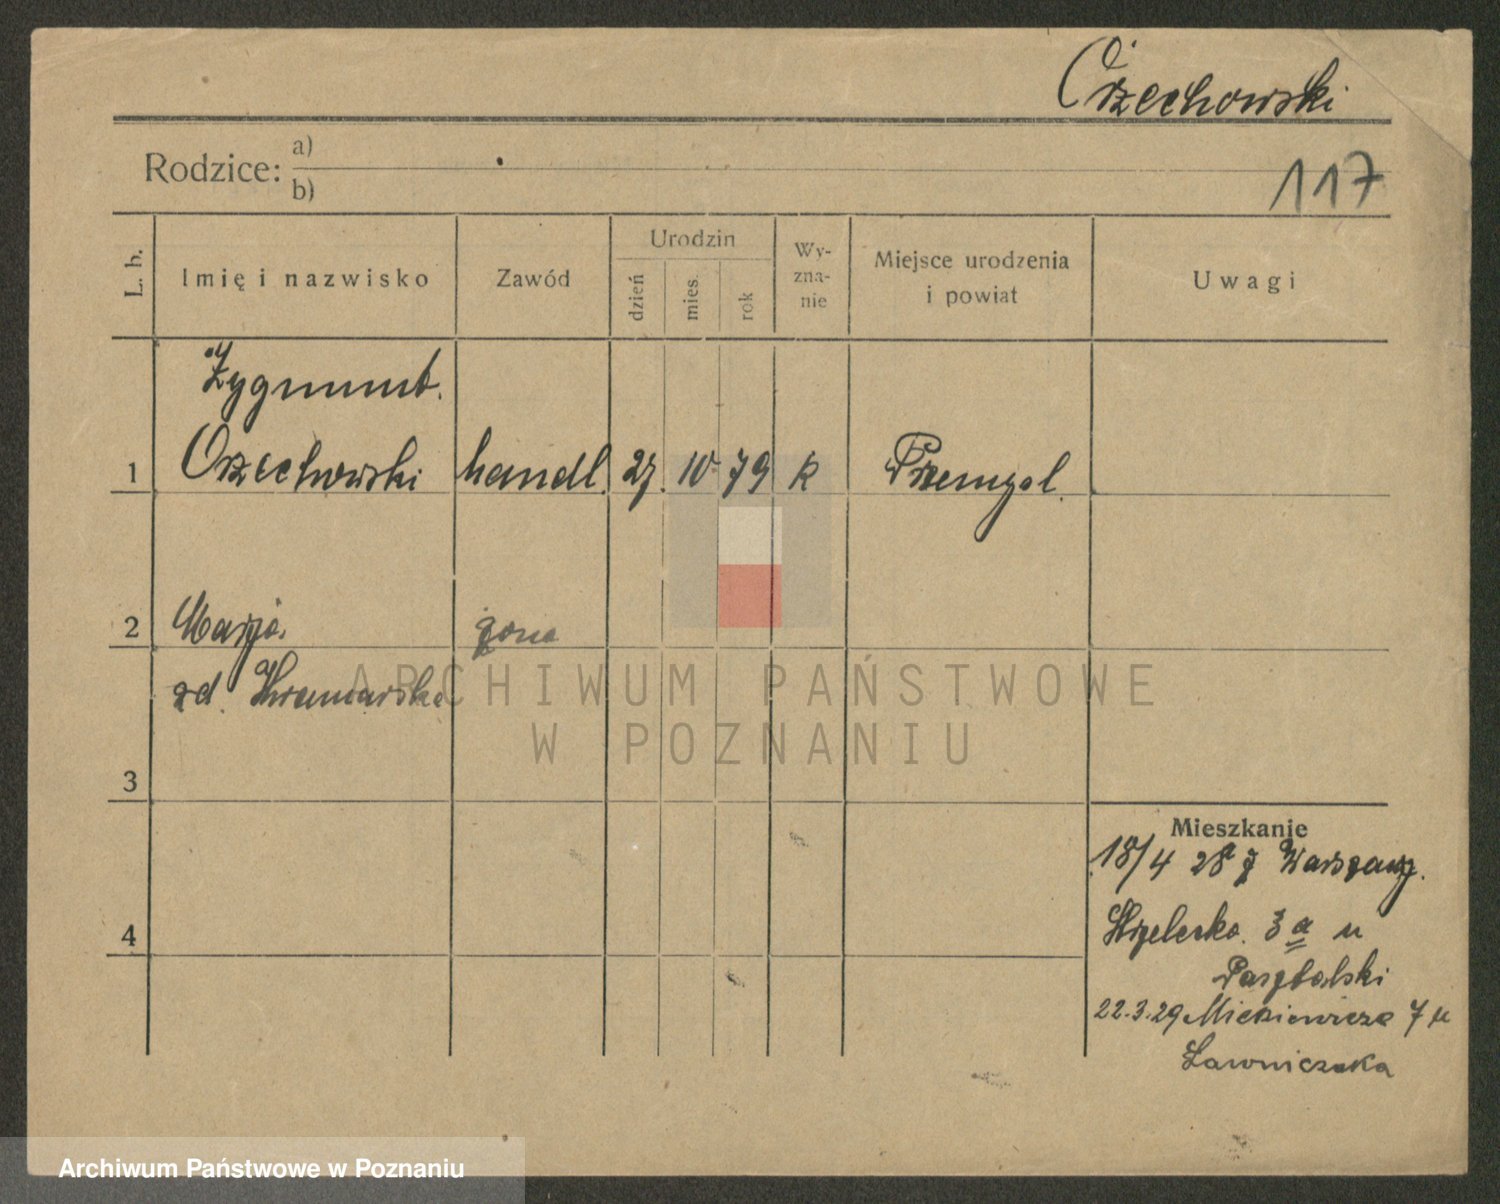 Orzechowski
117
Rodzice: a)
b)
L. b.
Imię i nazwisko
Zawód
Urodzin
dzień
mies.
rok
Wy-
zna-
nie
Miejsce urodzenia
i powiat
Uwagi
Zygmunt.
1 Orzechowski handl. 27. 10 79 k Przemysl.
2 Marja żona
zd. Kramarska
3
4
Mieszkanie
18/4 28 z Warszawy.
Strzelecka. 3a u
22.3.29 Mickiewicza 7 u
Ławniczaka
ARCHIWUM PAŃSTWOWE
W POZNANIU
Archiwum Państwowe w Poznaniu